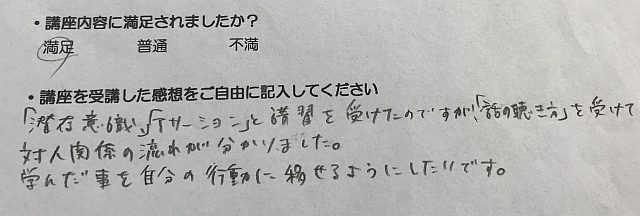 ・講座内容に満足されましたか?
満足 普通 不満
・講座を受講した感想をご自由に記入してください
「潜在意識」「アサーション」と講習を受けたのですが、「話の聴き方」を受けて
対人関係の流れが分かりました。
学んだ事を自分の行動に移せるようにしたいです。